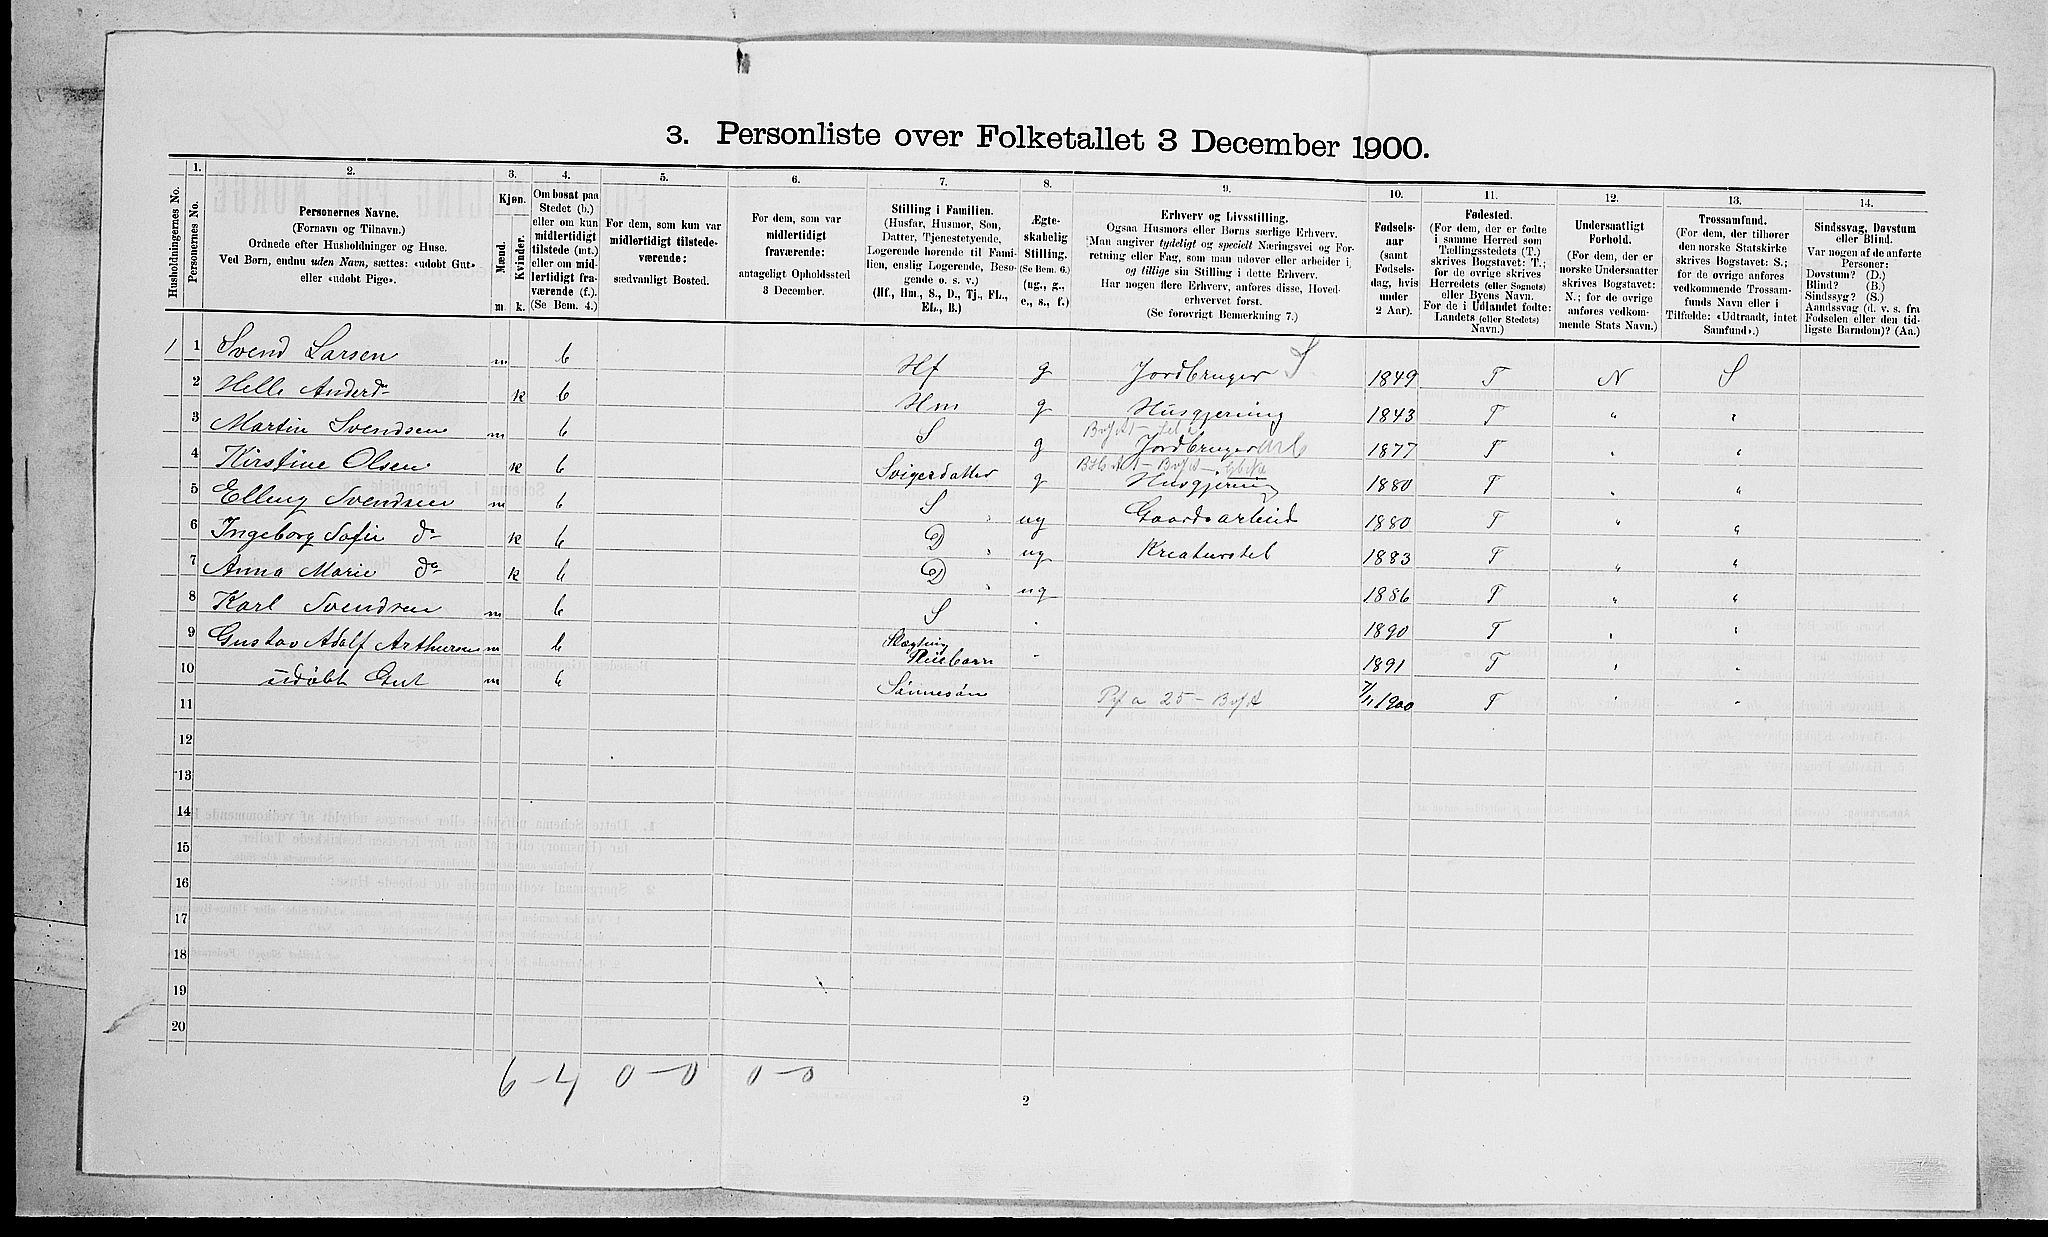 3. Personliste over Folketallet 3 December 1900.
Husholdningernes No.
1.
Personernes No.
2.
Personernes Navne.
(Fornavn og Tilnavn.)
Ordnede efter Husholdninger og Huse.
Ved Børn, endnu uden Navn, sættes: «udøbt Gut»
eller «udøbt Pige».
3.
Kjøn.
Mænd.
Kvinder.
m. k.
4.
Om bosat paa
Stedet (b.)
eller om kun
midlertidigt
tilstede (mt.)
eller om mid-
lertidigt fra-
værende (f.).
(Se Bem. 4.)
5.
For dem, som kun var
midlertidigt tilstede-
værende:
sædvanligt Bosted.
6.
For dem, som var
midlertidigt
fraværende:
antageligt Opholdssted
3 December.
7.
Stilling i Familien.
(Husfar, Husmor, Søn,
Datter, Tjenestetyende,
Logerende hørende til Fami-
lien, enslig Logerende, Besø-
gende o. s. v.)
(Hf., Hm., S., D., Tj., FL.,
EL., B.)
8.
Ægte-
skabelig
Stilling.
(Se Bem. 6.)
(ug., g.,
e., s., f.)
9.
Erhverv og Livsstilling.
Ogsaa Husmors eller Børns særlige Erhverv.
Man angiver tydeligt og specielt Næringsvei og For-
retning eller Fag, som man udøver eller arbeider i,
og tillige sin Stilling i dette Erhverv.
Har nogen flere Erhverv, anføres disse, Hoved-
erhvervet først.
(Se forøvrigt Bemærkning 7.)
10.
Fødsels-
aar
(samt
Fødsels-
dag, hvis
under
2 Aar).
11.
Fødested.
(For dem, der er fødte
i samme Herred som
Tællingsstedets (T.)
skrives Bogstavet: T.;
for de øvrige skrives
Herredets (eller Sognets)
eller Byens Navn.
For de i Udlandet fødte:
Landets (eller Stedets)
Navn.)
12.
Undersaatligt
Forhold.
(For dem, der er
norske Undersaatter
skrives Bogstavet:
N.; for de øvrige
anføres vedkom-
mende Stats Navn.)
13.
Trossamfund.
(For dem, der tilhører
den norske Statskirke
skrives Bogstavet: S.;
for de øvrige anføres
vedkommende Trossam-
funds Navn eller i
Tilfælde: «Udtraadt, intet
Samfund».)
14.
Sindssvag, Døvstum
eller Blind.
Var nogen af de anførte
Personer:
Døvstum? (D.)
Blind? (B.)
Sindssyg? (S.)
Aandssvag (d. v. s. fra
Fødselen eller den tid-
ligste Barndom)? (Aa.)
1 1 Svend Larsen m b Hf g Jordbruger S 1849 T N S
2 Helle Andersd k b Hm g Husgjerning 1843 T " "
3 Martin Svendsen m b S g Jordbruger 1877 T " "
4 Kirstine Olsen k b Svigerdatter g Husgjerning 1880 T " "
5 Elling Svendsen m b S ug Gaardsarbeid 1880 T " "
6 Ingeborg Sofie do k b D ug Kreaturstel 1883 T " "
7 Anna Marie do k b D ug 1886 T " "
8 Karl Svendsen m b S - 1890 T " "
9 Gustav Adolf Arthursen m b Slægtning Pleiebarn - 1891 T " "
10 udøbt Gut m b Sønnesøn 7/1 1900 T " "
11
12
13
14
15
16
17
18
19
20
6-4 0-0 0-0
2